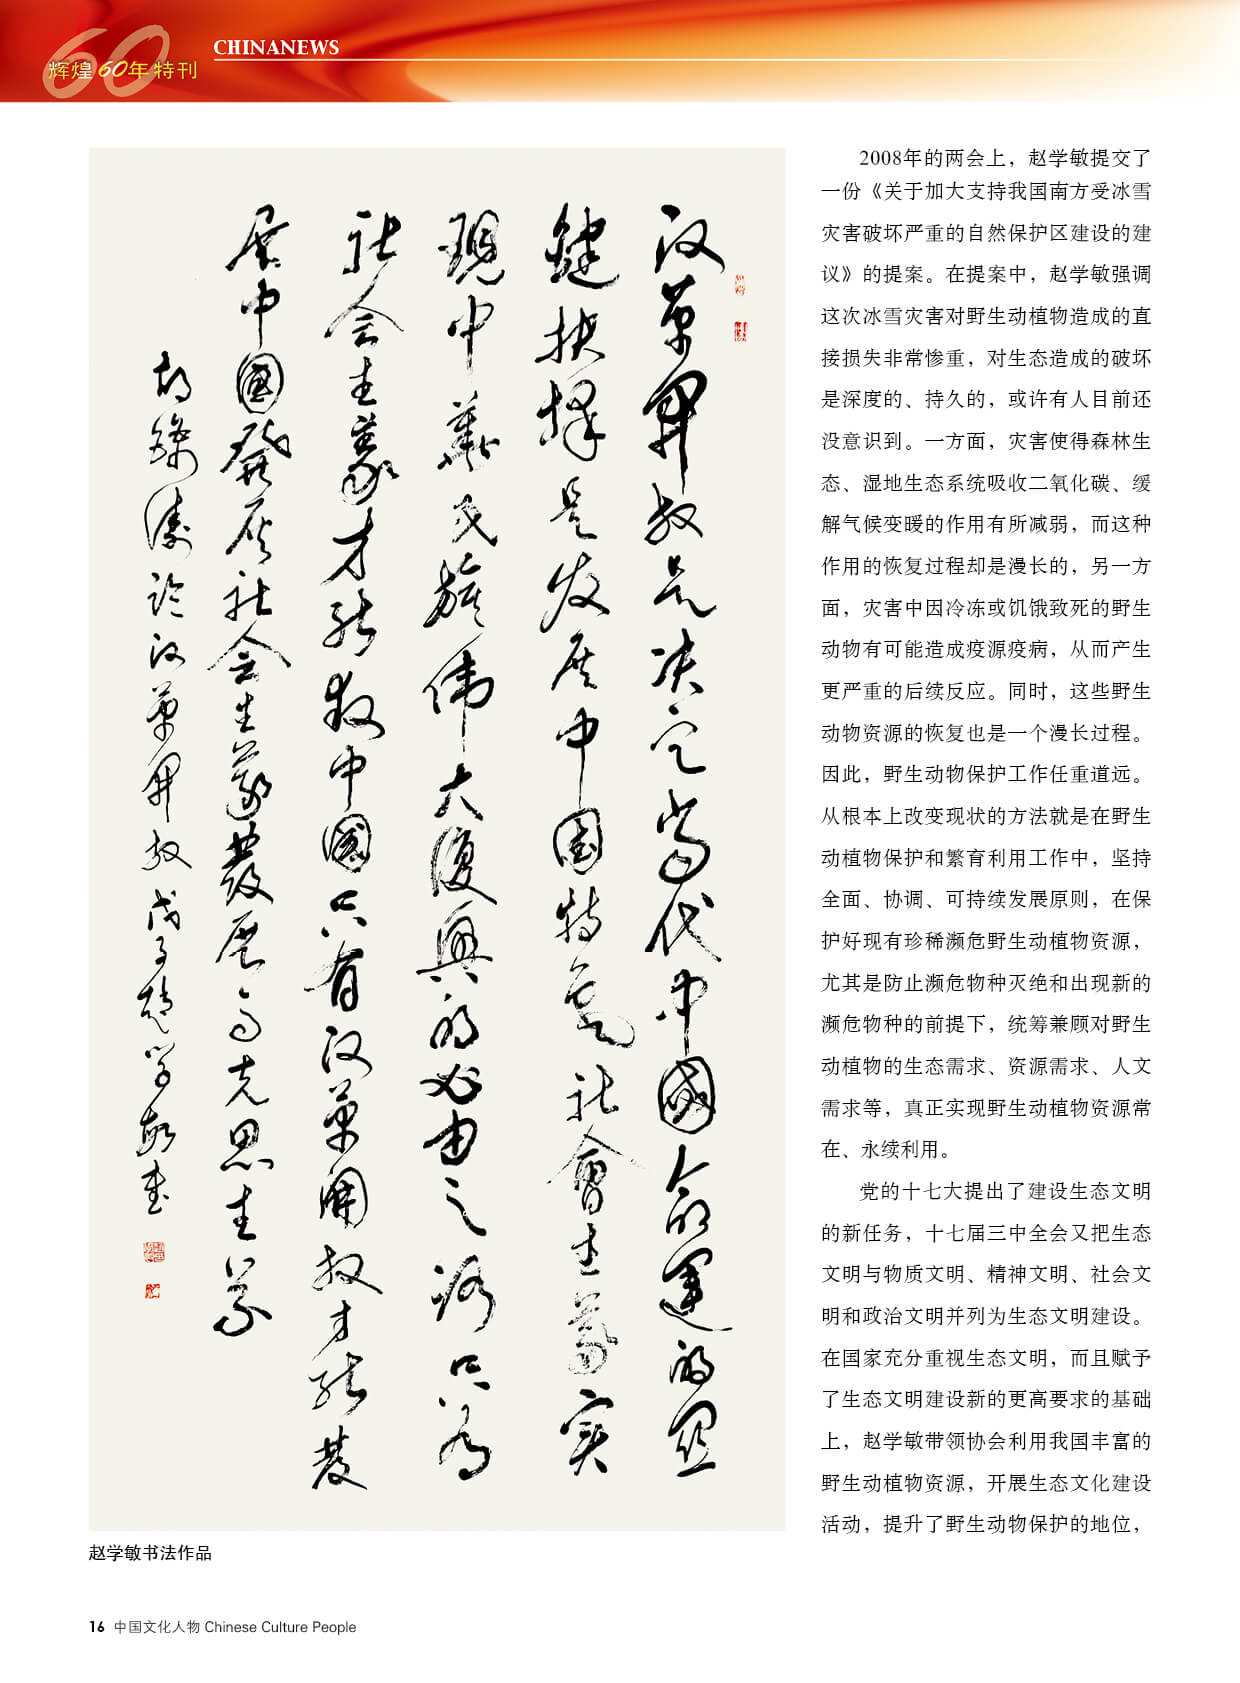 辉煌60年特刊
CHINANEWS
改革開放是决定当代中國命運的関
键抉择是发展中国特色社會主義实
現中華民族伟大復興的必由之路只有
社会主義才能救中國只有改革開放才能發
展中國發展社会主義發展马克思主義
胡錦濤论改革開放戊子赵学敏書
赵学敏书法作品
2008年的两会上，赵学敏提交了
一份《关于加大支持我国南方受冰雪
灾害破坏严重的自然保护区建设的建
议》的提案。在提案中，赵学敏强调
这次冰雪灾害对野生动植物造成的直
接损失非常惨重，对生态造成的破坏
是深度的、持久的，或许有人目前还
没意识到。一方面，灾害使得森林生
态、湿地生态系统吸收二氧化碳、缓
解气候变暖的作用有所减弱，而这种
作用的恢复过程却是漫长的，另一方
面，灾害中因冷冻或饥饿致死的野生
动物有可能造成疫源疫病，从而产生
更严重的后续反应。同时，这些野生
动物资源的恢复也是一个漫长过程。
因此，野生动物保护工作任重道远。
从根本上改变现状的方法就是在野生
动植物保护和繁育利用工作中，坚持
全面、协调、可持续发展原则，在保
护好现有珍稀濒危野生动植物资源，
尤其是防止濒危物种灭绝和出现新的
濒危物种的前提下，统筹兼顾对野生
动植物的生态需求、资源需求、人文
需求等，真正实现野生动植物资源常
在、永续利用。
党的十七大提出了建设生态文明
的新任务，十七届三中全会又把生态
文明与物质文明、精神文明、社会文
明和政治文明并列为生态文明建设。
在国家充分重视生态文明，而且赋予
了生态文明建设新的更高要求的基础
上，赵学敏带领协会利用我国丰富的
野生动植物资源，开展生态文化建设
活动，提升了野生动物保护的地位，
16 中国文化人物 Chinese Culture People